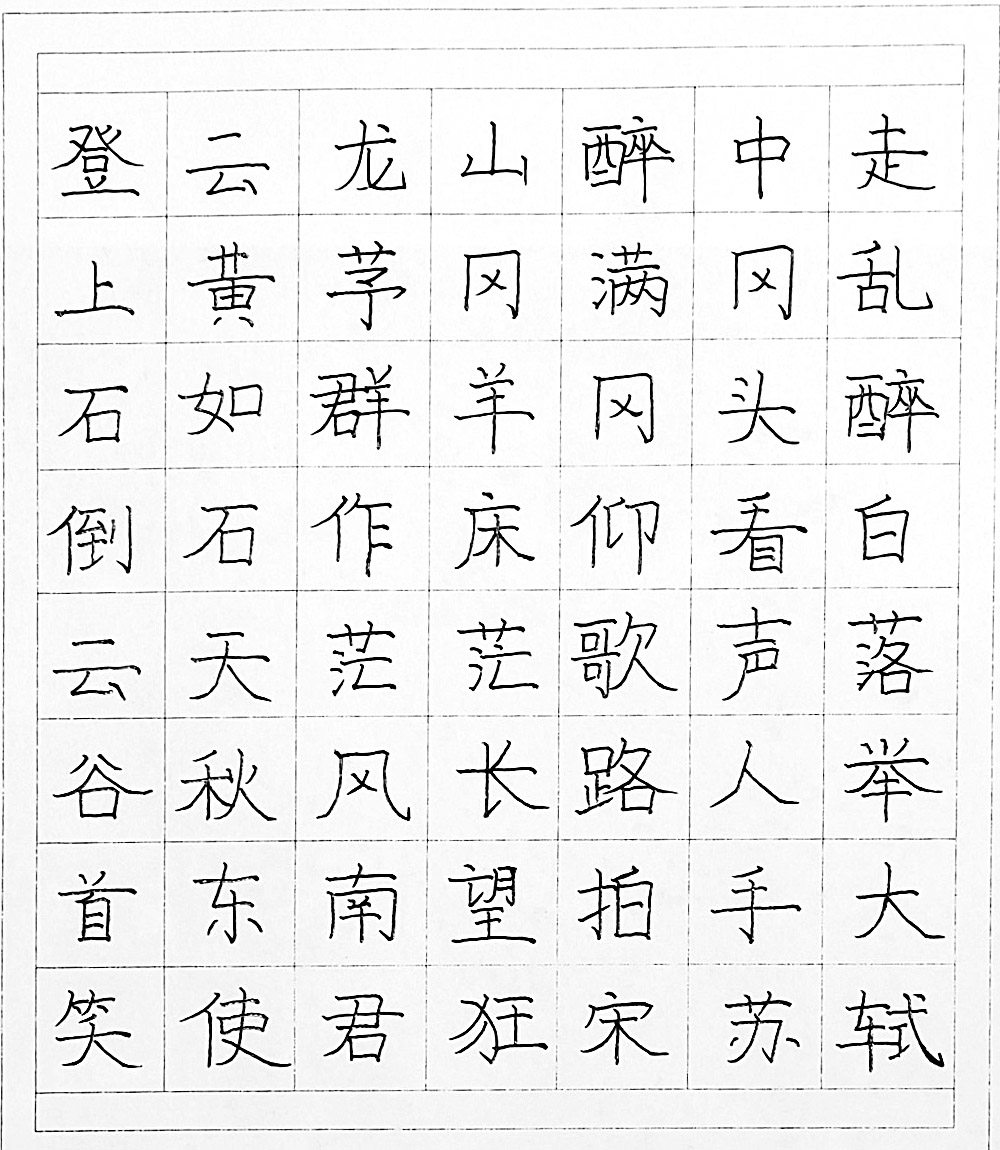 登云龙山醉中走
上黄茅冈满冈乱
石如群羊冈头醉
倒石作床仰看白
云天茫茫歌声落
谷秋风长路人举
首东南望拍手大
笑使君狂宋苏轼